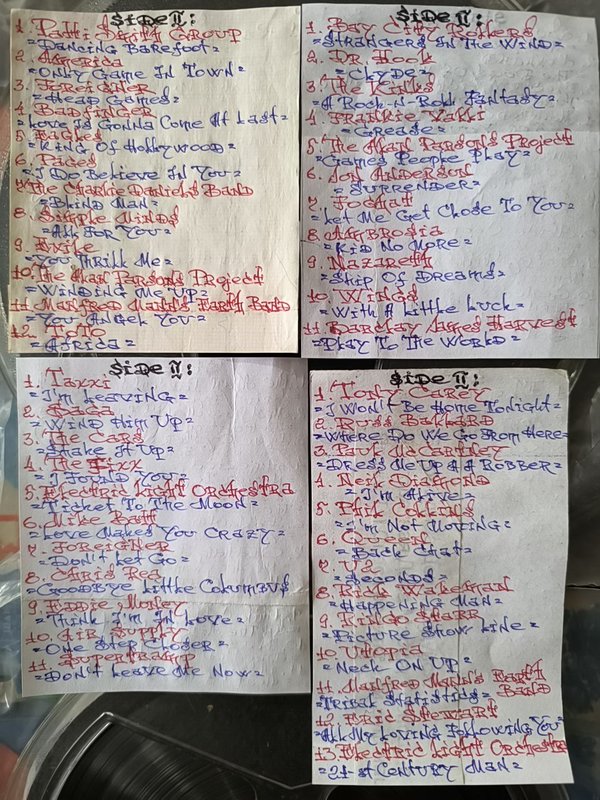 Side II:
1. Patti Smith Group
= Dancing Barefoot =
2. America
= Only Game In Town =
3. Foreigner
= Head Games =
4. Badfinger
= Love Is Gonna Come At Last =
5. Eagles
= King Of Hollywood =
6. Pages
= I Do Believe In You =
7. The Charlie Daniels Band
= Blind Man =
8. Simple Minds
= All For You =
9.
= You Thrill Me =
10. The Alan Parsons Project
= Winding Me Up =
11. Manfred Mann's Earth Band
= You Angel You =
12. Toto
= Africa =
Side II:
1. Bay City Rollers
= Strangers In The Wind =
2. Dr. Hook
= Clyde =
3. The Kinks
= A Rock-N-Roll Fantasy =
4. Frankie Valli
= Grease =
5. The Alan Parsons Project
= Games People Play =
6. Jon Anderson
= Surrender =
7. Foghat
= Let Me Get Close To You =
8. Ambrosia
= Kid No More =
9. Nazareth
= Ship Of Dreams =
10. Wings
= With A Little Luck =
11. Barclay James Harvest
= Play To The World =
Side II:
1. Taxxi
= I'm Leaving =
2. Saga
= Wind Him Up =
3. The Cars
= Shake It Up =
4. The Fixx
= I Found You =
5. Electric Light Orchestra
= Ticket To The Moon =
6. Mike Batt
= Love Makes You Crazy =
7. Foreigner
= Don't Let Go =
8. Chris Rea
= Goodbye Little Columbus
9. Eddie Money
= Think I'm In Love =
10. Air Supply
= One Step Closer =
11. Supertramp
= Don't Leave Me Now =
Side II:
1. Tony Carey
= I Won't Be Home Tonight =
2. Russ Ballard
= Where Do We Go From Here =
3. Paul McCartney
= Dress Me Up A A Robber =
4. Neil Diamond
= I'm Alive =
5. Phil Collins
= I'm Not Moving =
6. Queen
= Back Chat =
7. U2
= Seconds =
8. Rick Wakeman
= Happening Man =
9. Ringo Starr
= Picture Show Life =
10. Utopia
= Neck On Up =
11. Manfred Mann's Earth Band
= Tribal Statistics =
12. Eric Stewart
= All My Loving Following You =
13. Electric Light Orchestra
= 21-st Century Man =